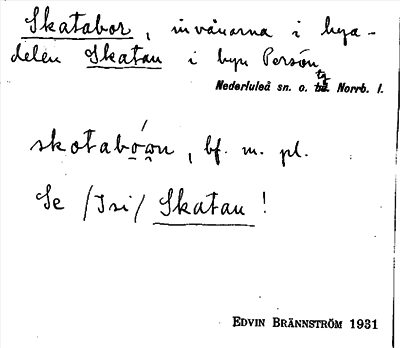 Skatabor, invånarna i bya-
delen Skatan i byn Persön
Nederluleå sn. o. tg. Norrb. l.
skataból̥n, bf. m. pl.
Se /Isi/ Skatan!
EDVIN BRÄNNSTRÖM 1931